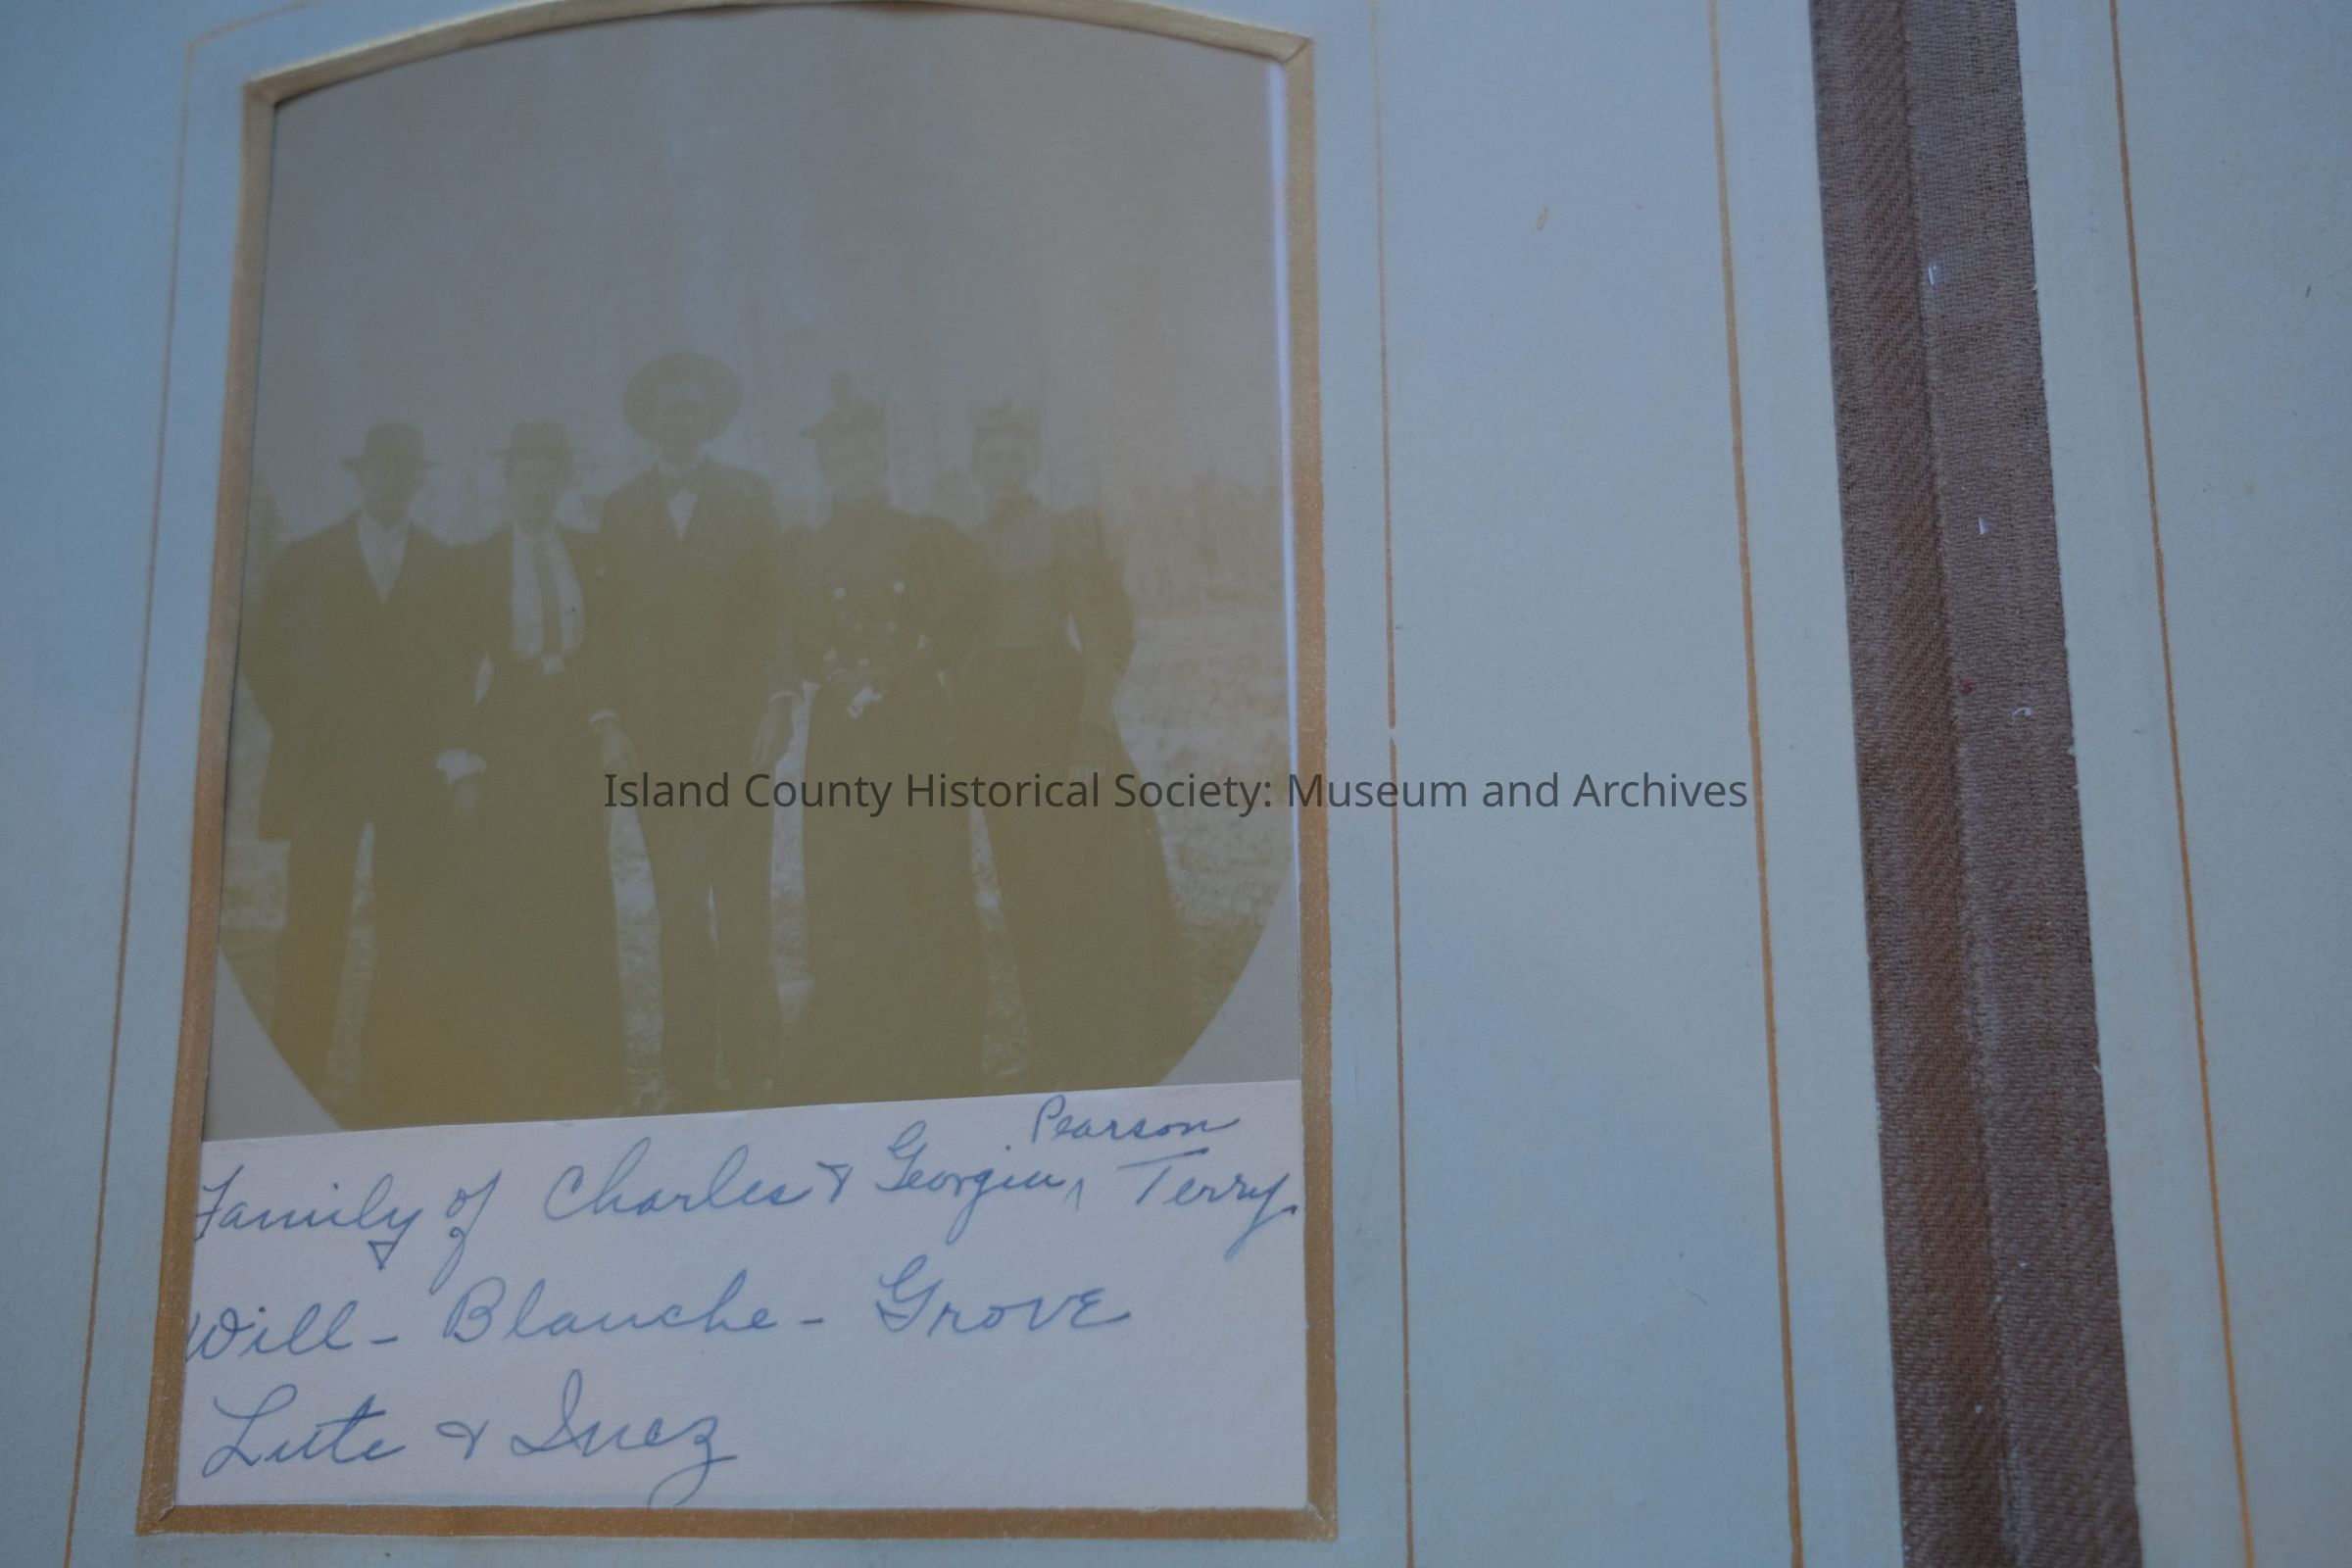 Island County Historical Society: Museum and Archives
Pearson
Family of Charles & Georgia ^ Terry.
Will - Blanche - Grove
Lute & Inez